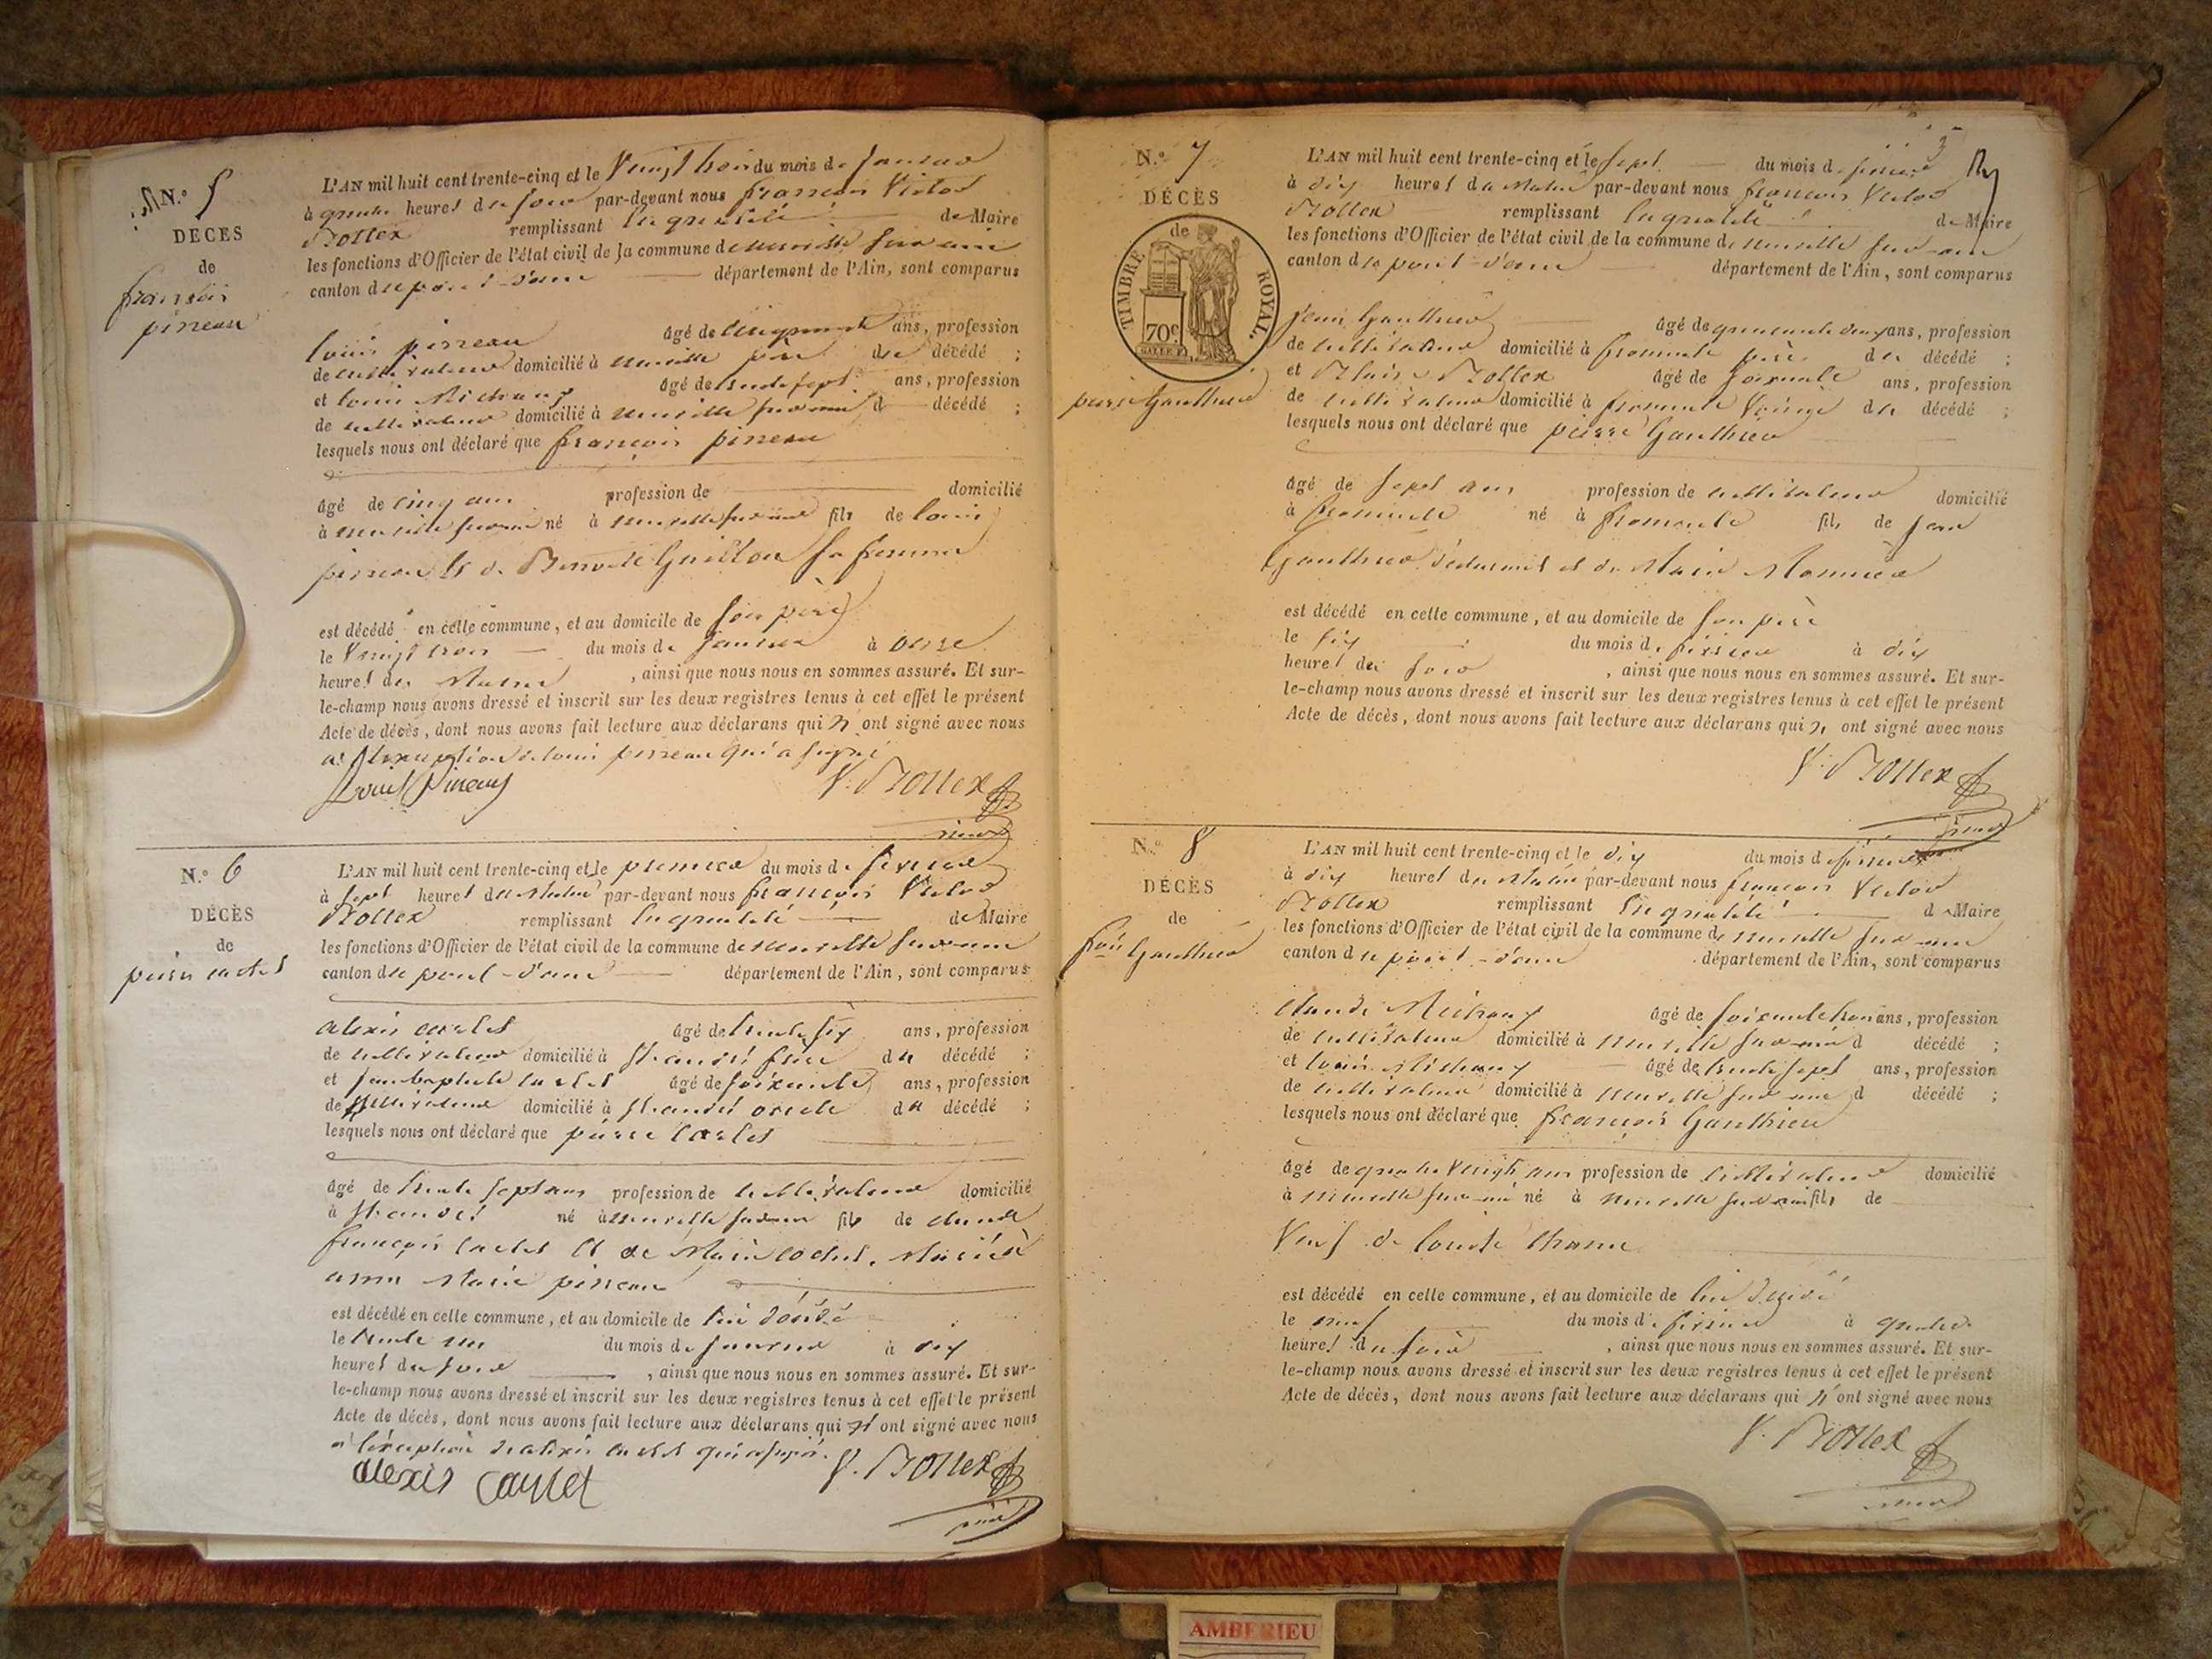 N.° 5
DÉCÈS
de
françois
pineau
L'AN mil huit cent trente-cinq et le Vingt trois du mois de Janvier
à quatre heures du soir par-devant nous françois Victor
Bottex remplissant la qualité de Maire
les fonctions d'Officier de l'état civil de la commune de neuville sur ain
canton du pont-d'ain département de l'Ain, sont comparus
louis pineau âgé de ans, profession
de cultivateur domicilié à neuville père du décédé ;
et louis Michaux âgé de trente sept ans, profession
de cultivateur domicilié à neuville sur ain d décédé ;
lesquels nous ont déclaré que françois pineau
âgé de cinq ans profession de domicilié
à neuville sur ain né à neuville sur ain fils de louis
pineau et de Guillon sa femme
est décédé en cette commune, et au domicile de son père
le Vingt trois du mois de Janvier à onze
heures du Matin, ainsi que nous nous en sommes assuré. Et sur-
le-champ nous avons dressé et inscrit sur les deux registres tenus à cet effet le présent
Acte de décès, dont nous avons fait lecture aux déclarans qui n'ont signé avec nous
a l'exception de louis pineau qui a signé
Louis Pineau V. Bottex
maire
N.° 6
DÉCÈS
de
pierre
L'AN mil huit cent trente-cinq et le premier du mois de fevrier
à sept heures du Matin par-devant nous françois Victor
Bottex remplissant la qualité de Maire
les fonctions d'Officier de l'état civil de la commune de neuville sur ain
canton du pont-d'ain département de l'Ain, sont comparus
alexis carlet âgé de trente six ans, profession
de cultivateur domicilié à St andré frère du décédé ;
et Jean baptiste carlet âgé de soixante ans, profession
de cultivateur domicilié à St andré oncle du décédé ;
lesquels nous ont déclaré que pierre Carlet
âgé de trente sept ans profession de cultivateur domicilié
à St andré né à neuville sur ain fils de claude
françois carlet et de Marie Marié à
anne Marie pineau
est décédé en cette commune, et au domicile de lui décédé
le trente un du mois de Janvier à dix
heures du soir, ainsi que nous nous en sommes assuré. Et sur-
le-champ nous avons dressé et inscrit sur les deux registres tenus à cet effet le présent
Acte de décès, dont nous avons fait lecture aux déclarans qui n'ont signé avec nous
a l'exception de alexis carlet qui a signé.
alexis carlet V. Bottex
maire
N.° 7
DÉCÈS
de
TIMBRE ROYAL
70c
pierre Gauthier
L'AN mil huit cent trente-cinq et le sept du mois de fevrier
à dix heures du Matin par-devant nous françois Victor
Bottex remplissant la qualité de Maire
les fonctions d'Officier de l'état civil de la commune de neuville sur ain
canton du pont-d'ain département de l'Ain, sont comparus
Jean Gauthier âgé de quarante deux ans, profession
de cultivateur domicilié à fromente père du décédé ;
et Bottex âgé de soixante ans, profession
de cultivateur domicilié à fromente Voisin du décédé ;
lesquels nous ont déclaré que pierre Gauthier
âgé de sept ans profession de cultivateur domicilié
à fromente né à fromente fils de Jean
Gauthier et de Marie Monnier
est décédé en cette commune, et au domicile de son père
le six du mois de fevrier à dix
heures du soir, ainsi que nous nous en sommes assuré. Et sur-
le-champ nous avons dressé et inscrit sur les deux registres tenus à cet effet le présent
Acte de décès, dont nous avons fait lecture aux déclarans qui n'ont signé avec nous
V. Bottex
maire
N.° 8
DÉCÈS
de
fois Gauthier
L'AN mil huit cent trente-cinq et le dix du mois de fevrier
à dix heures du Matin par-devant nous françois Victor
Bottex remplissant la qualité de Maire
les fonctions d'Officier de l'état civil de la commune de neuville sur ain
canton du pont-d'ain département de l'Ain, sont comparus
claude Michaux âgé de soixante trois ans, profession
de cultivateur domicilié à neuville sur ain d décédé ;
et louis Michaux âgé de trente sept ans, profession
de cultivateur domicilié à neuville sur ain d décédé ;
lesquels nous ont déclaré que françois Gauthier
âgé de quatre Vingts ans profession de cultivateur domicilié
à neuville sur ain né à neuville sur ain fils de
Veuf de
est décédé en cette commune, et au domicile de lui décédé
le neuf du mois de fevrier à quatre
heures du soir, ainsi que nous nous en sommes assuré. Et sur-
le-champ nous avons dressé et inscrit sur les deux registres tenus à cet effet le présent
Acte de décès, dont nous avons fait lecture aux déclarans qui n'ont signé avec nous
V. Bottex
maire
AMBERIEU